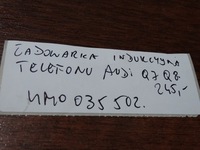 ŁADOWARKA INDUKCYJNA
TELEFONU AUDI Q7 Q8.
245,-
4M0 035 502.